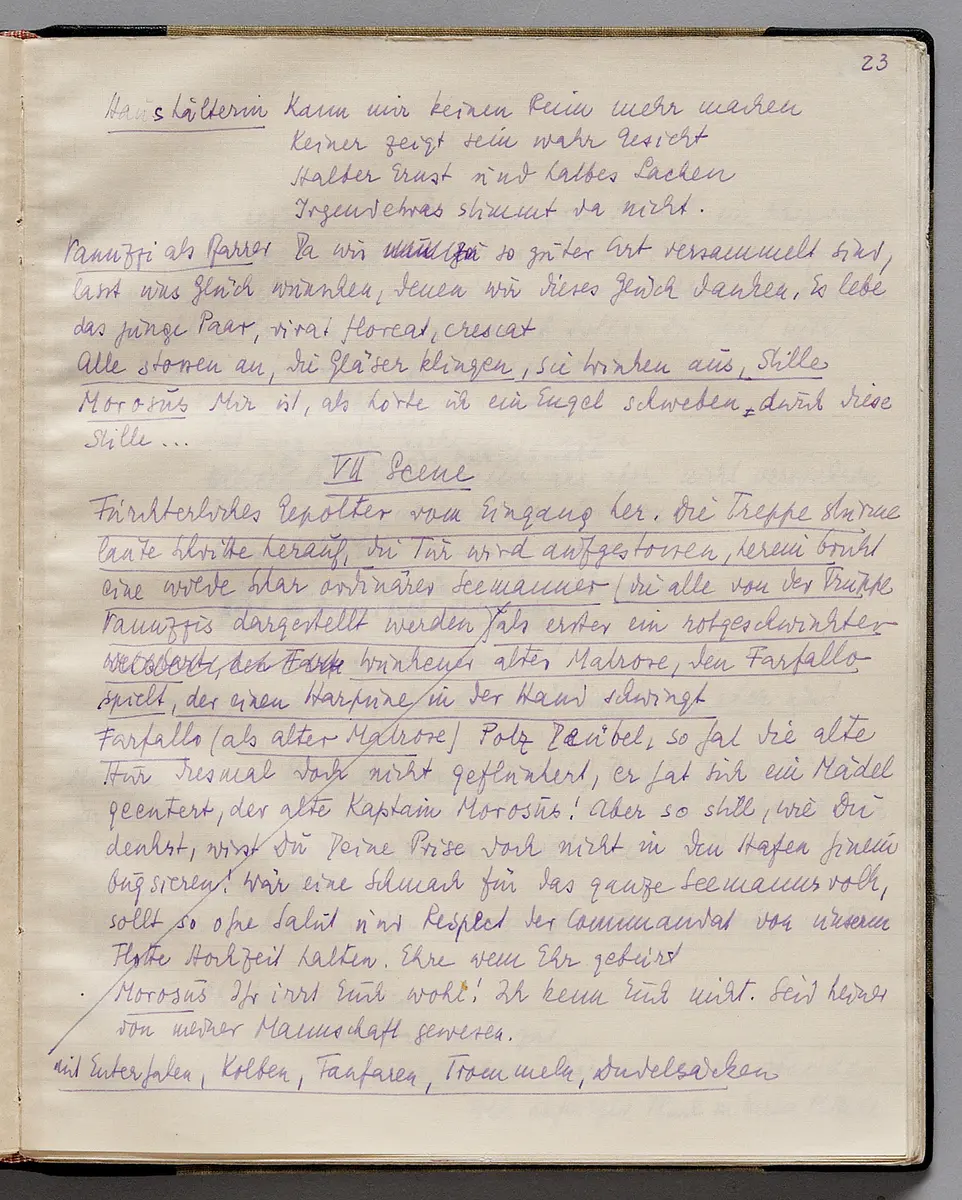 23
Haushälterin Kann mir keinen Reim mehr machen
Keiner zeigt sein wahr Gesicht
Halber Ernst und halbes Lachen
Irgendetwas stimmt da nicht.
Vanuzzi als Pfarrer Da wir so guter Art versammelt sind,
lasst uns Glück wünschen, denen wir dieses Glück danken. Es lebe
das junge Paar, vivat floreat, crescat
Alle stossen an, die Gläser klingen, sie trinken aus, Stille
Morosus Mir ist, als hörte ich ein Engel schweben durch diese
Stille...
VII Scene
Fürchterliches Gepolter vom Eingang her. Die Treppe stürmen
laute Schritte herauf, die Tür wird aufgestossen, herein bricht
eine wilde Schar ordinärer Seemanner (die alle von der Truppe
Vanuzzis dargestellt werden) als erster ein rotgeschminkter
alter Matrose, den Farfallo
spielt, der einen Harpune in der Hand schwingt
Farfallo (als alter Matrose) Potz Teubel, so hat die alte
Hur diesmal doch nicht geflunkert, er hat sich ein Mädel
geentert, der alte Kaptain Morosus! Aber so still, wie Du
denkst, wirst Du Deine Prise doch nicht in den Hafen hinein
bugsieren! Wär eine Schmach für das ganze Seemannsvolk,
sollt so ohne Salut und Respect der Commandat von unserm
Flotte Hochzeit halten. Ehre wem Ehr gebürt
Morosus Ihr irrt Euch wohl! Ich kenn Euch nicht. Seid keiner
von meiner Mannschaft gewesen.
mit Enterhaken, Kolben, Fanfaren, Trommeln, Dudelsäcken